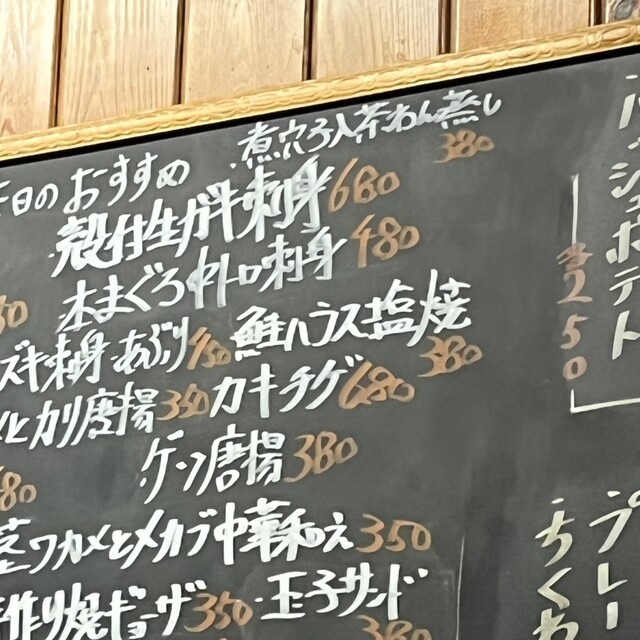 日のおすすめ
煮穴子入茶わん蒸し
380
殻付生ガキ刺身 680
本まぐろ中トロ刺身 480
ズキ刺身・あぶり
鮭ハラス塩焼
380
唐揚 350
カキチゲ 680
ゲソ唐揚 380
80
茎ワカメとメカブ中華和え 350
作り焼ギョーザ 350
・玉子サンド
380
ジュポテト
250
プレー
ちくわ